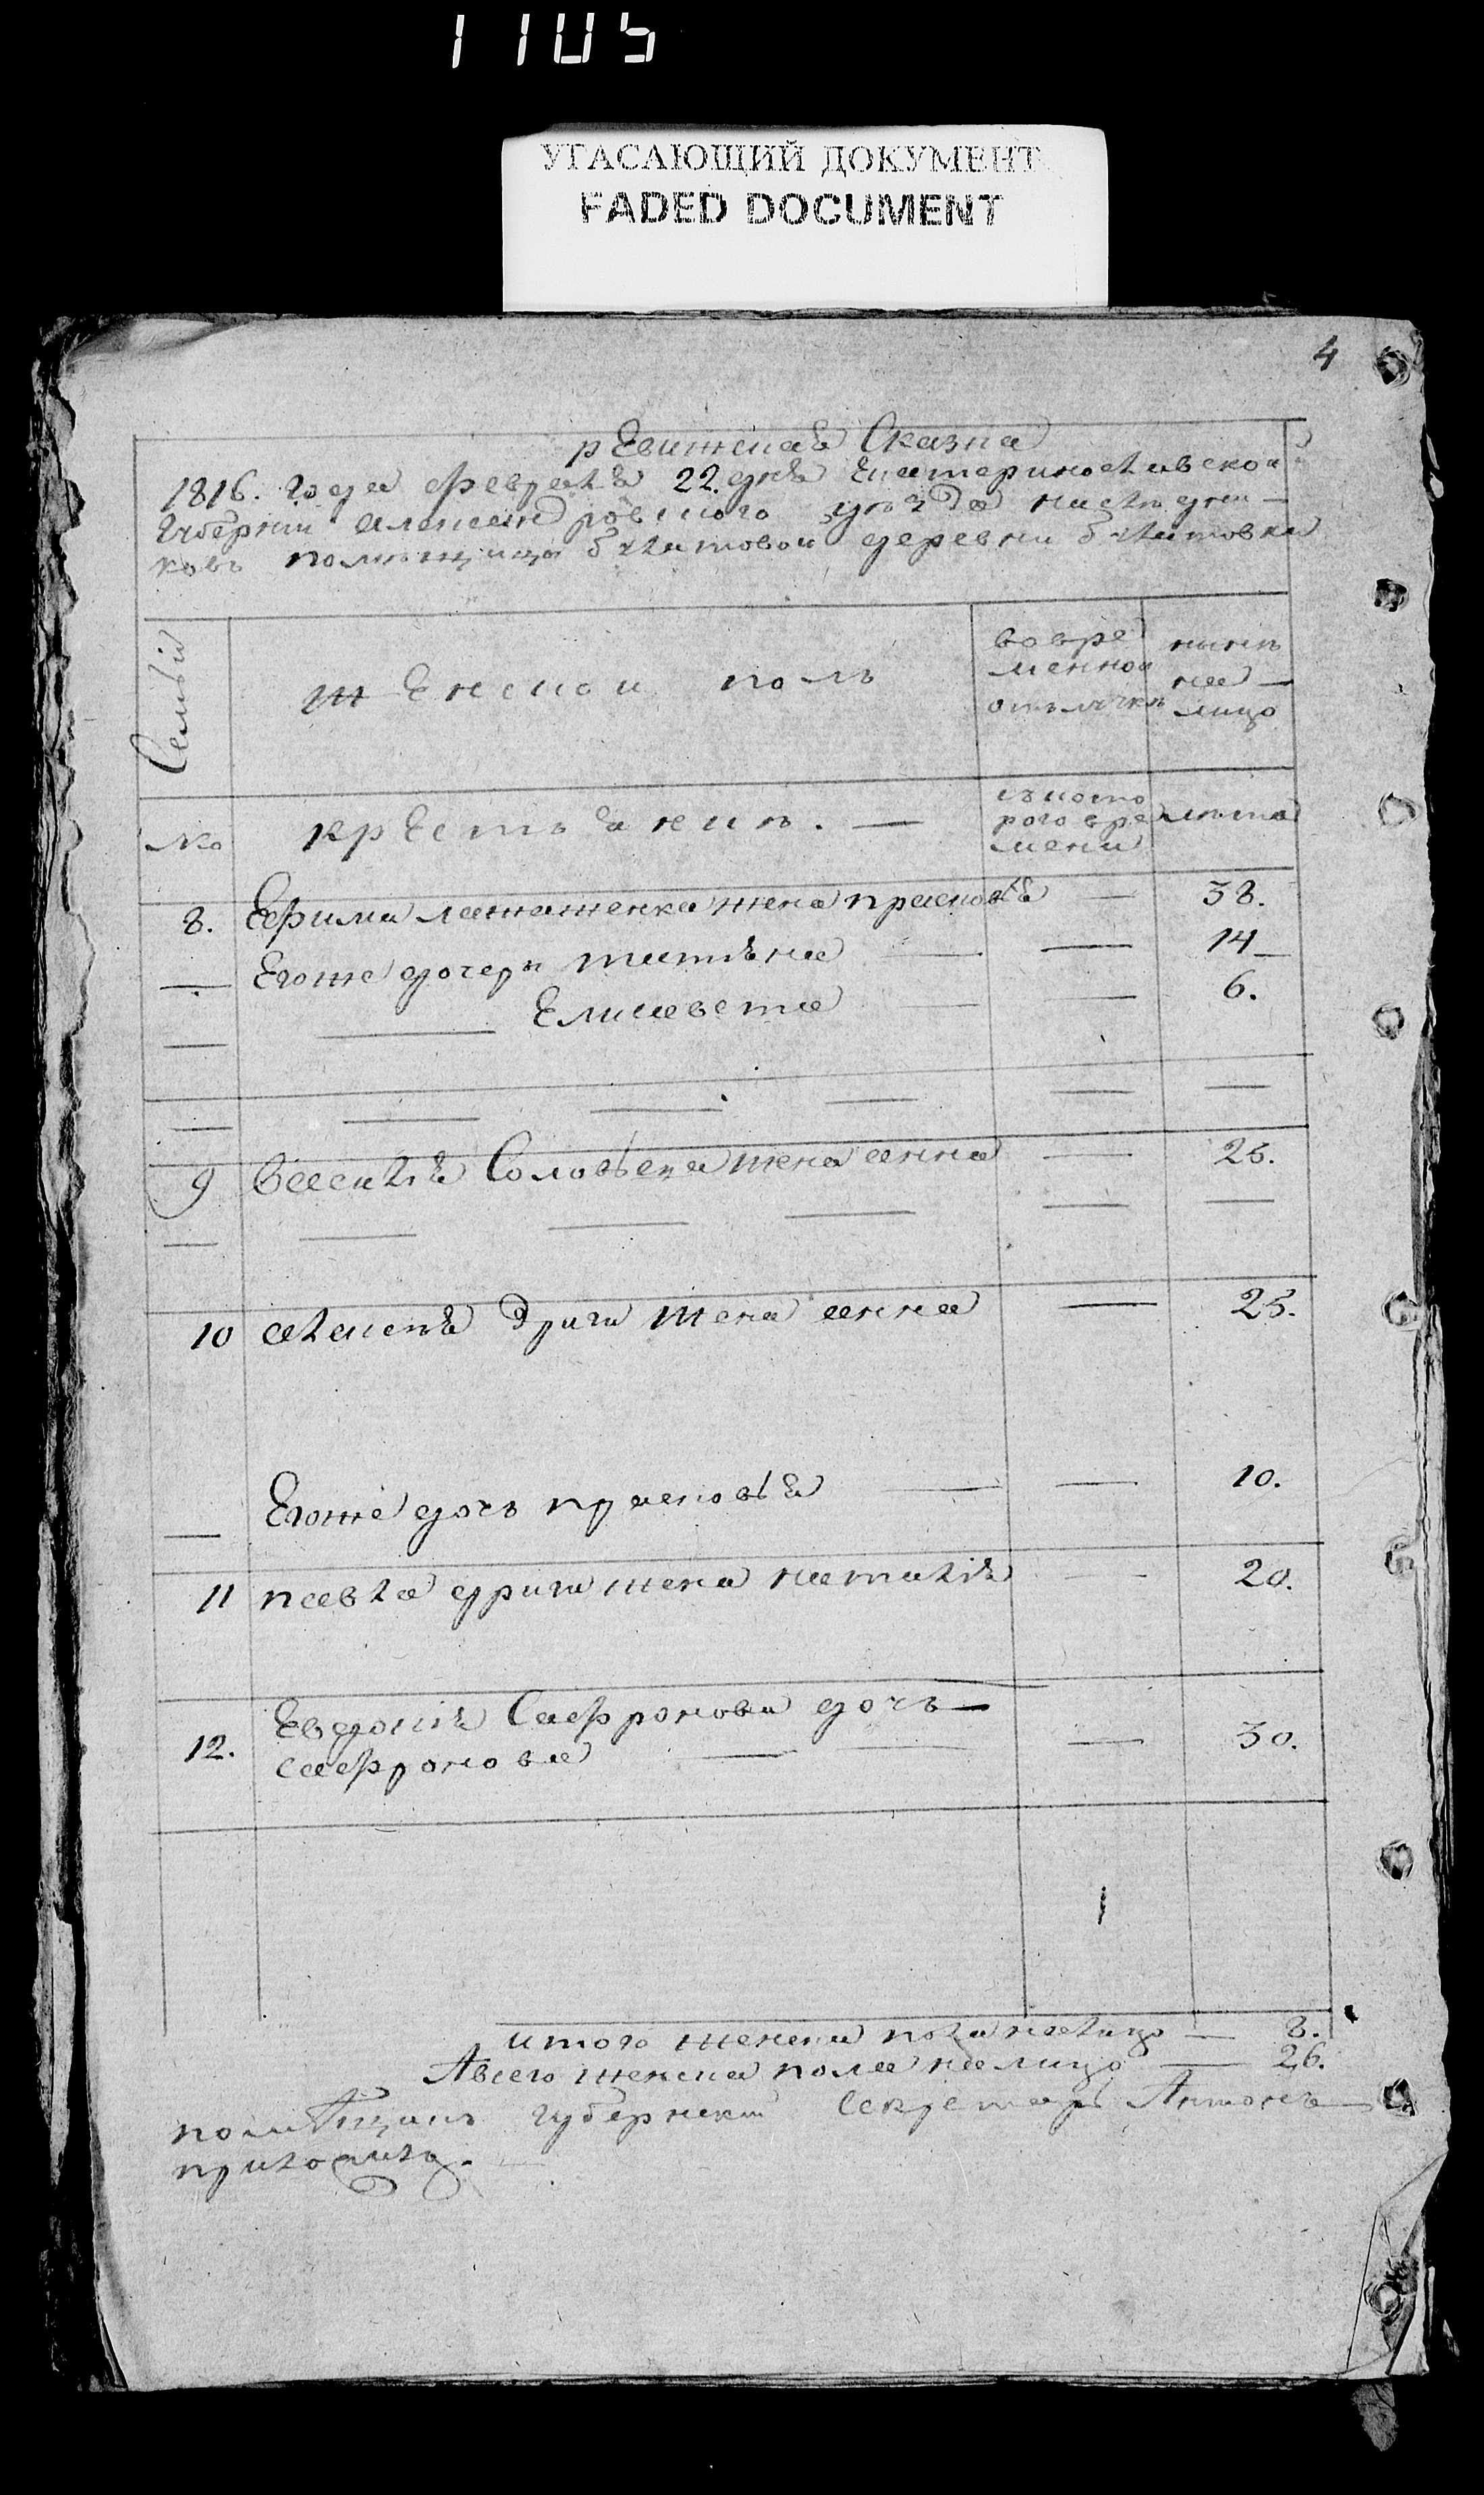 1105
УГАСАЮЩИЙ ДОКУМЕНТ
FADED DOCUMENT
4
ревижская Сказка
1816. года февраля 22. дня Екатеринославской
Губернии александровского уезда наследни-
ковъ помещицы булатовои деревни булатовки
Семьи
женской полъ
во вре
менной
отлучке
ныне
на —
лицо
№
крестьянинъ. —
съ кото
рого вре
мени
лета
8. Ефима жена прасковья — 38.
— Егоже дочери татьяна — — 14 —
— — Елисавета — — 6.
9 василия Соловьена жена анна — 25.
10 алексея Други жена анна — 25.
— Егоже дочь прасковья — — 10.
11 павла други жена наталия — 20.
12. Евдокия Сафронова дочь —
сафронова — — — 30.
итого женска пола налицо — 8.
А всего женска пола налицо — 26.
помещикъ губернски Секретарь Антонъ —